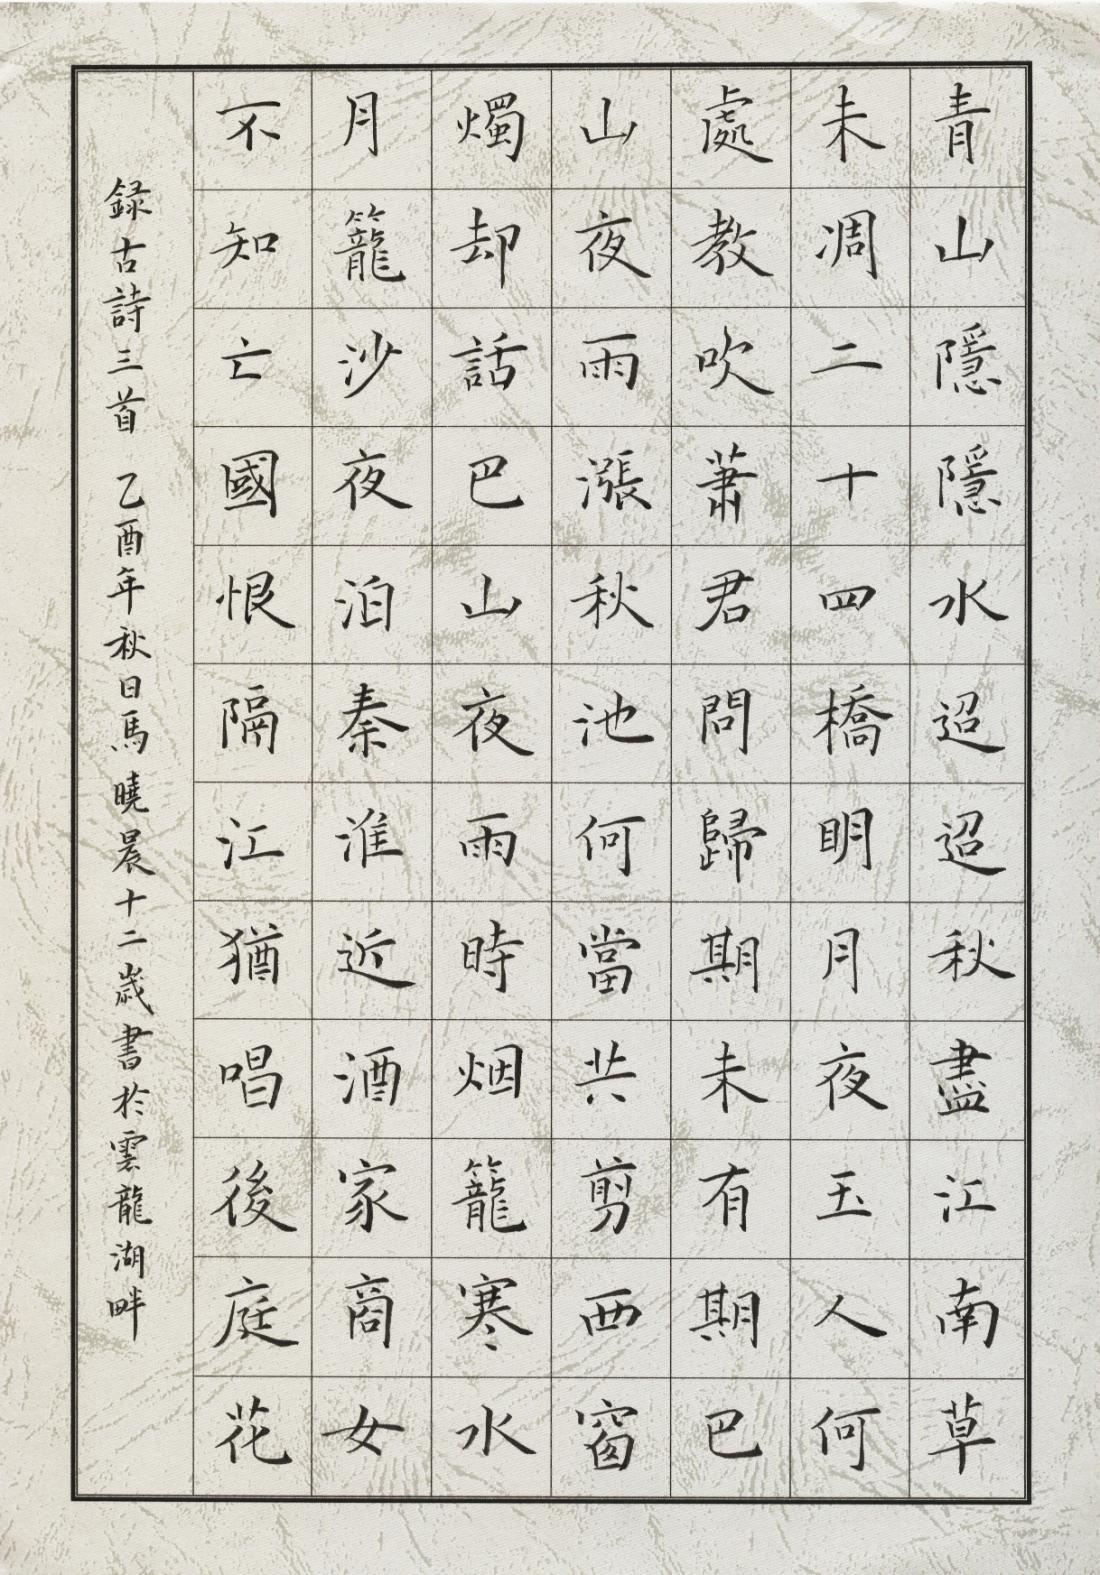 青山隱隱水迢迢秋盡江南草
未凋二十四橋明月夜玉人何
處教吹蕭君問歸期未有期巴
山夜雨漲秋池何當共剪西窗
燭却話巴山夜雨時烟籠寒水
月籠沙夜泊秦淮近酒家商女
不知亡國恨隔江猶唱後庭花
録古詩三首 乙酉年秋日馬曉晨十二歲書於雲龍湖畔